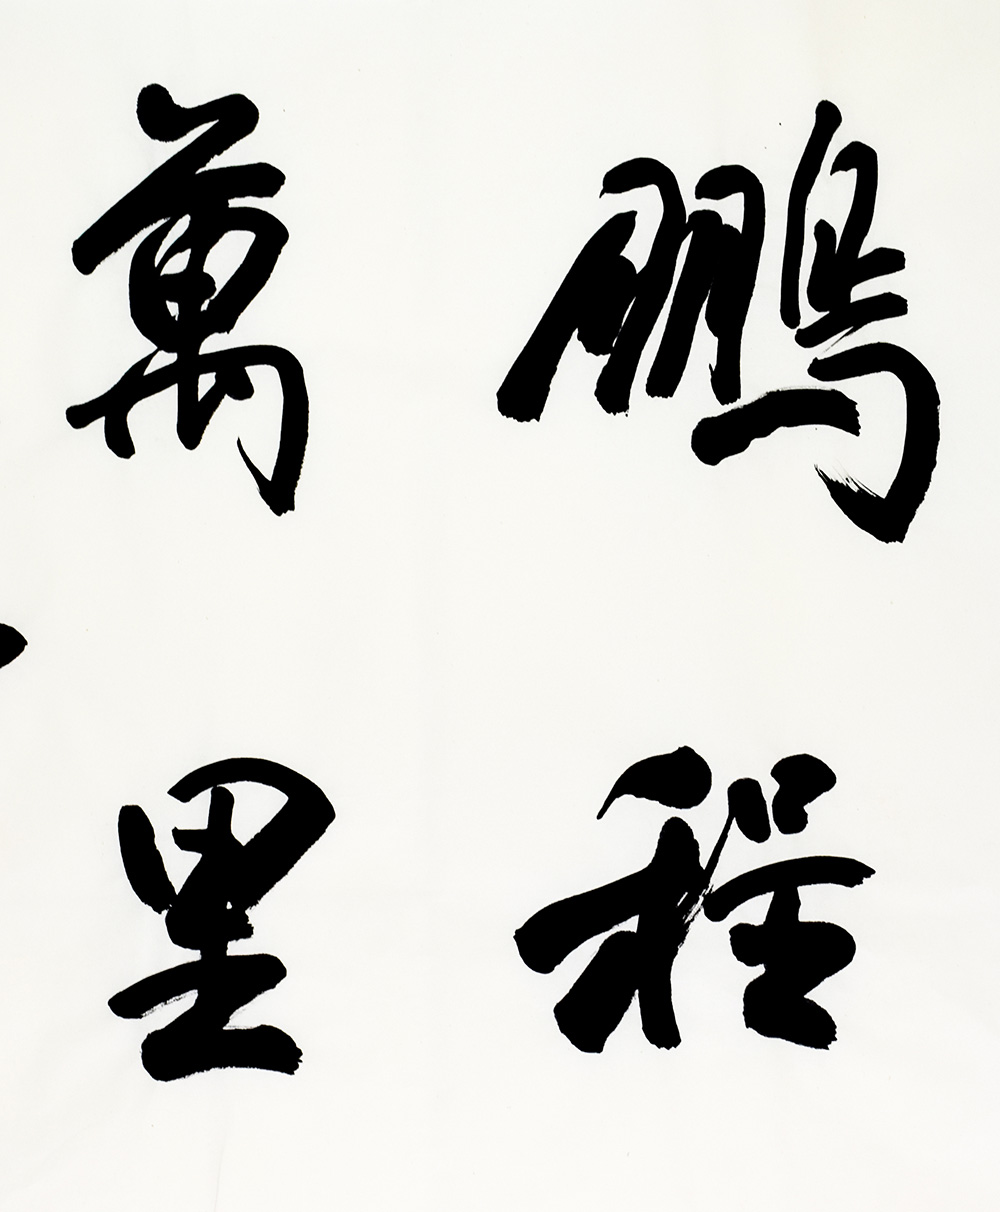 鵬程
萬里